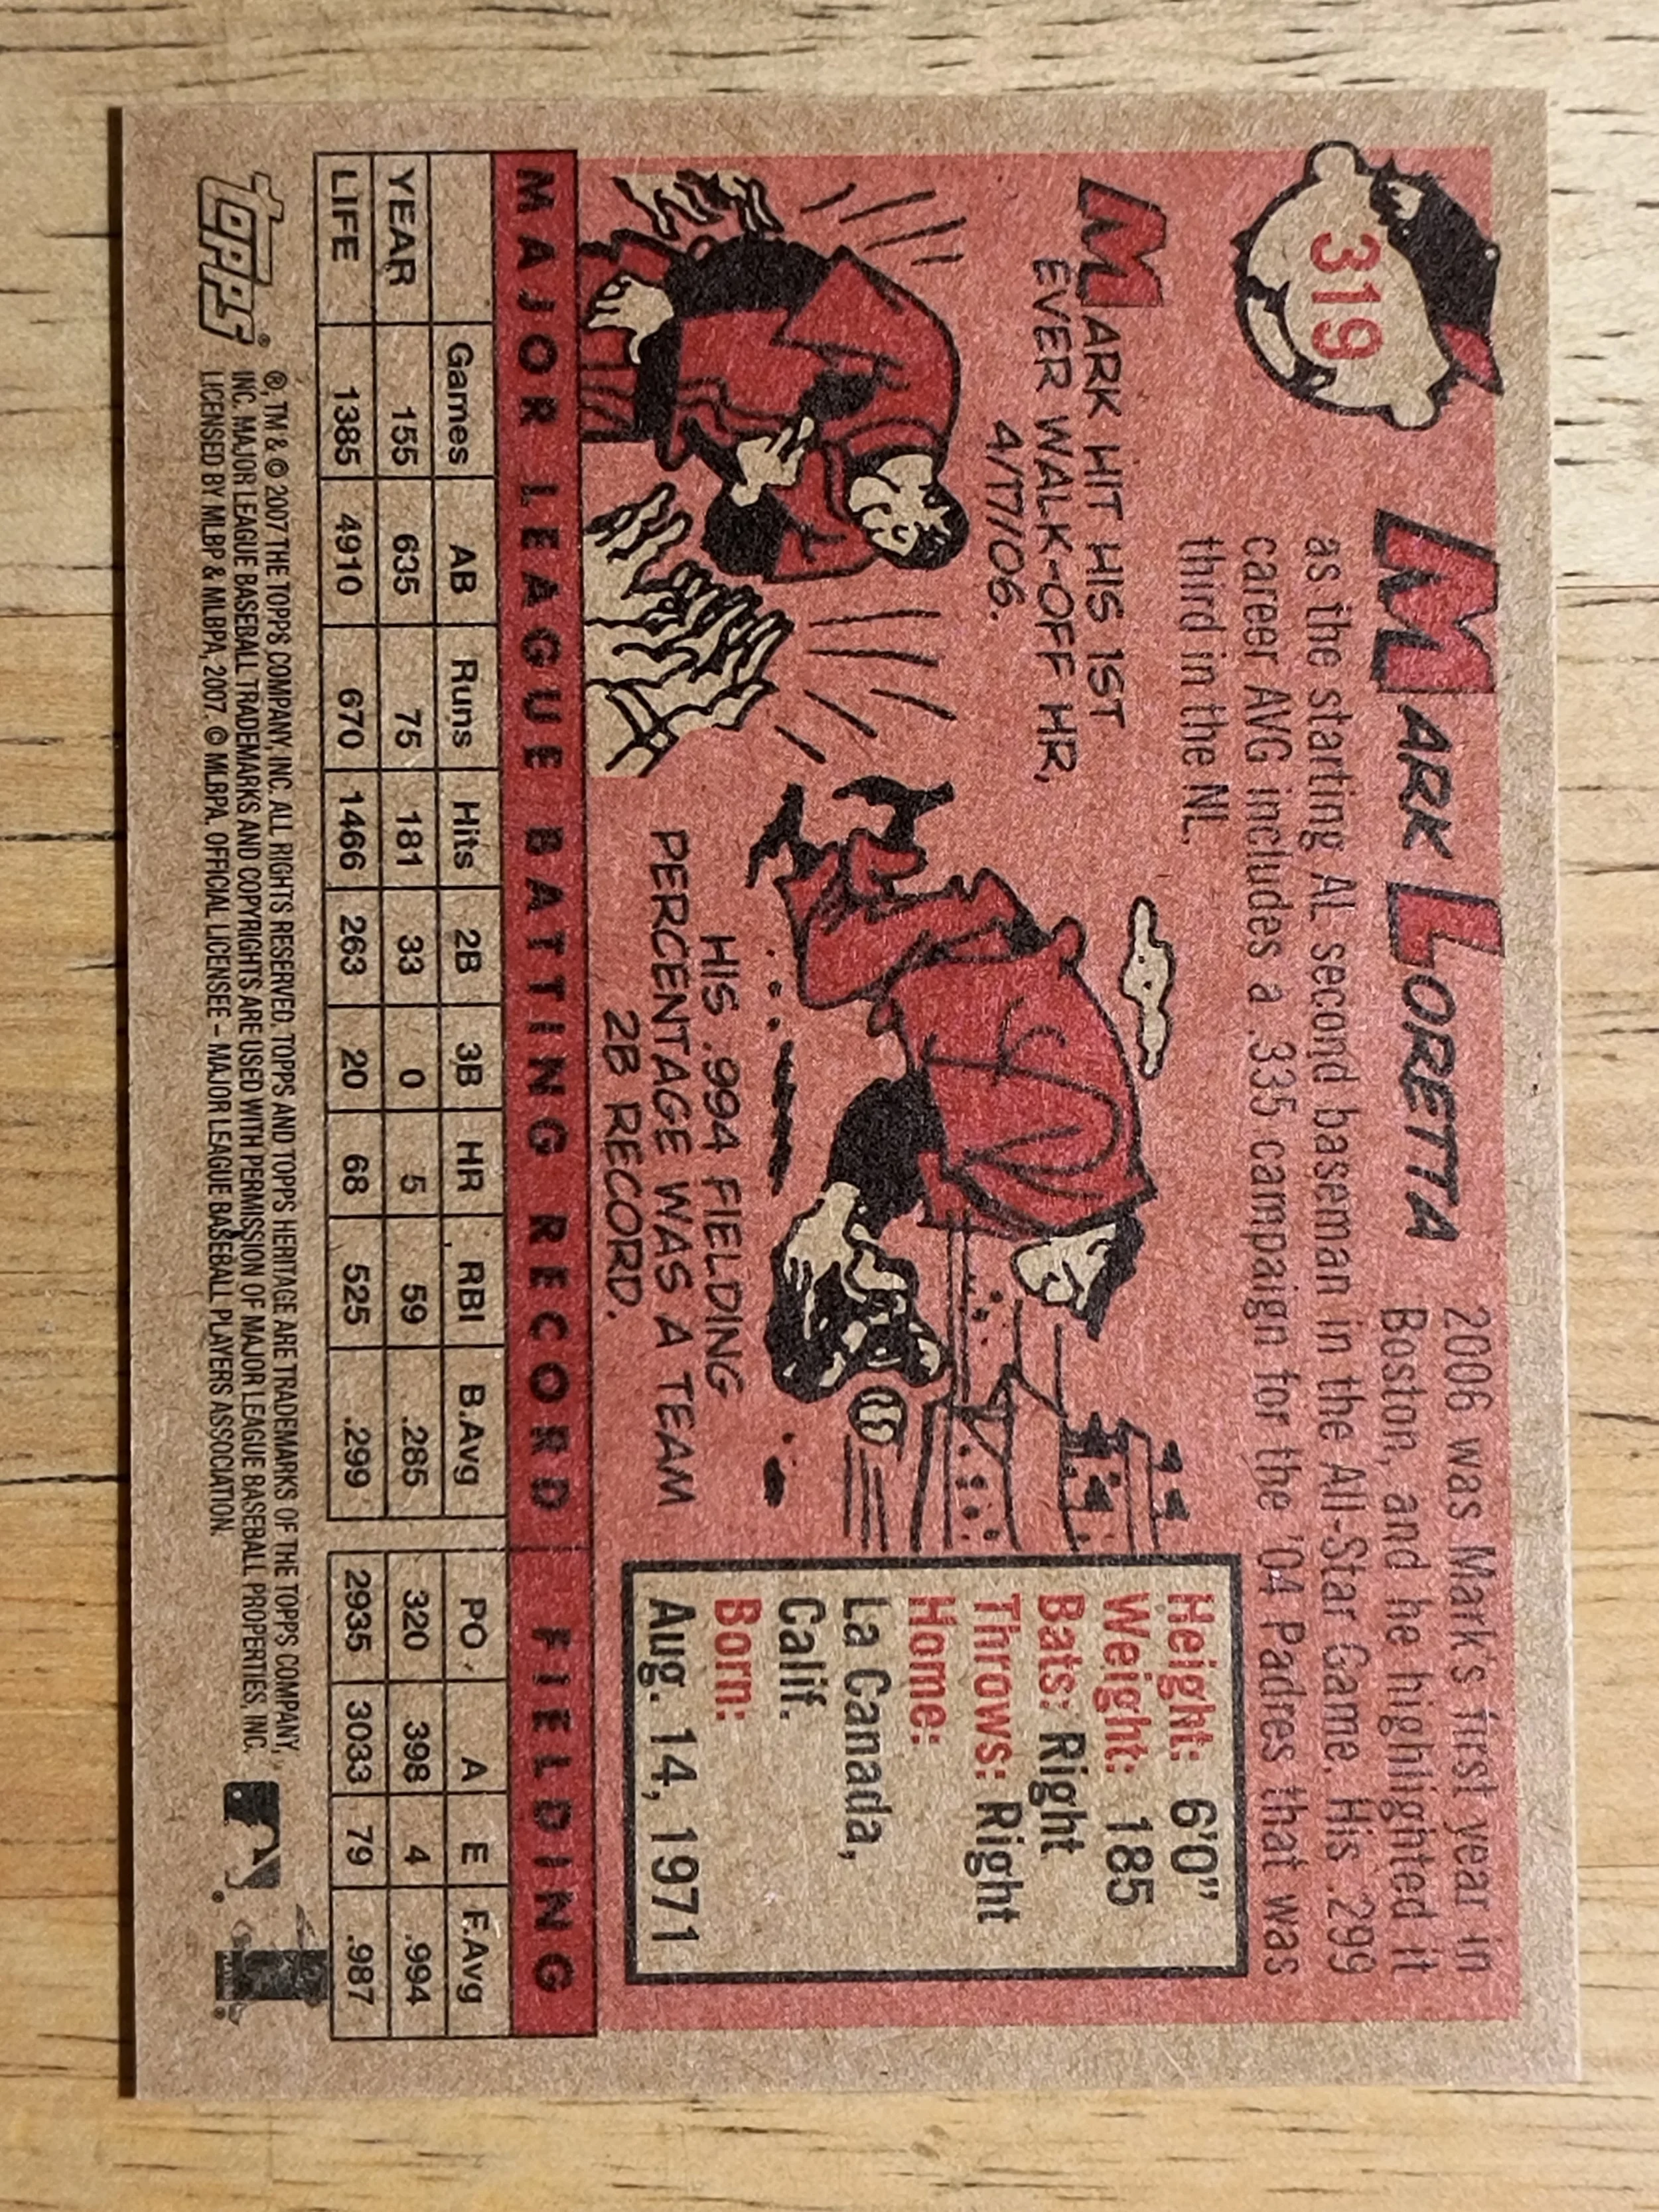 319
MARK LORETTA
2006 was Mark's first year in
Boston, and he highlighted it
as the starting AL second baseman in the All-Star Game. His .299
career AVG includes a .335 campaign for the '04 Padres that was
third in the NL.
MARK HIT HIS 1ST
EVER WALK-OFF HR,
4/17/06.
HIS .994 FIELDING
PERCENTAGE WAS A TEAM
2B RECORD.
Height: 6'0"
Weight: 185
Bats: Right
Throws: Right
Home:
La Canada,
Calif.
Born:
Aug. 14, 1971
MAJOR LEAGUE BATTING RECORD FIELDING
Games AB Runs Hits 2B 3B HR RBI B.Avg PO A E F.Avg
YEAR 155 635 75 181 33 0 5 59 .285 320 398 4 .994
LIFE 1385 4910 670 1466 263 20 68 525 .299 2935 3033 79 .987
topps®
®, TM & © 2007 THE TOPPS COMPANY, INC. ALL RIGHTS RESERVED. TOPPS AND TOPPS HERITAGE ARE TRADEMARKS OF THE TOPPS COMPANY,
INC. MAJOR LEAGUE BASEBALL TRADEMARKS AND COPYRIGHTS ARE USED WITH PERMISSION OF MAJOR LEAGUE BASEBALL PROPERTIES, INC.
LICENSED BY MLBP & MLBPA, 2007. © MLBPA. OFFICIAL LICENSEE – MAJOR LEAGUE BASEBALL PLAYERS ASSOCIATION.